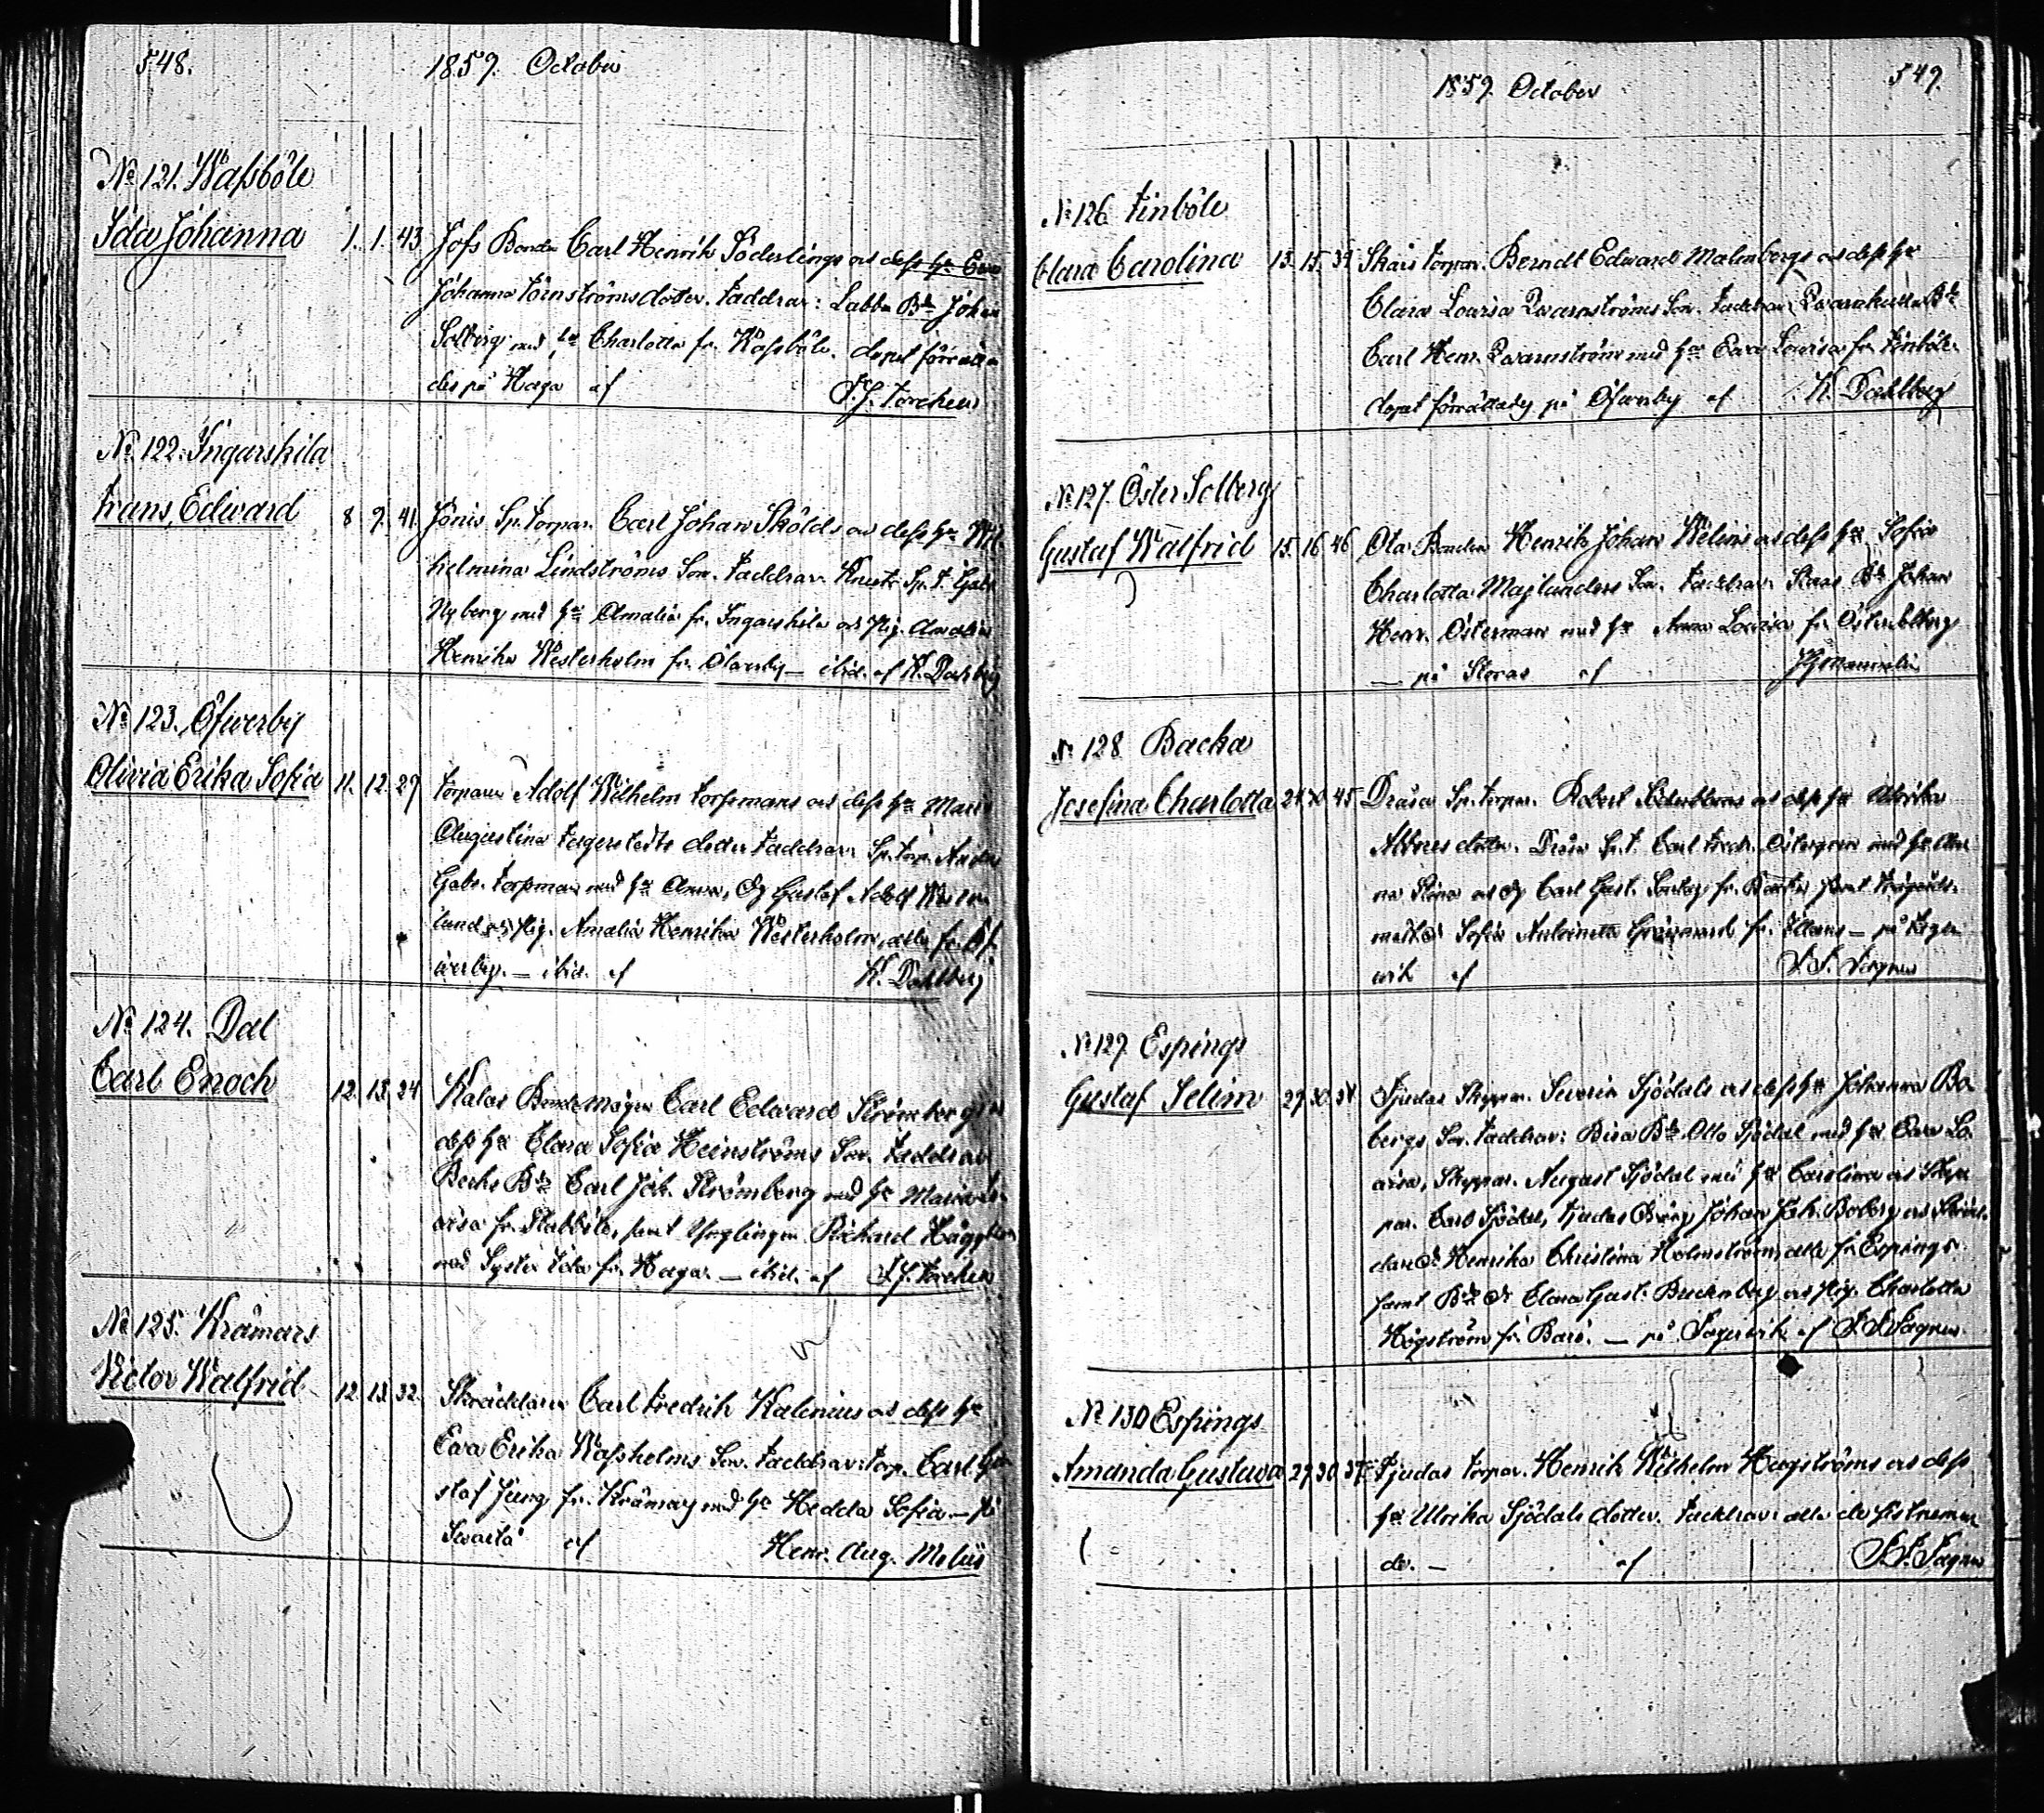 548.
1859. October
No 121. Wassböle
Ida Johanna 1. 1. 43 Jofs Bonden Carl Henrik Söderlings och dess hu Eva
Johanna Törnströms dotter. Faddrar: Labba Bde Johan
Solberg med hu Charlotta fr. Wassböle. dopet förrätta
des på Haga af F.J. Forchen
No 122. Ingarskila
Frans Edward 8 9. 41. Jönis Sp. torpar. Carl Johan Skölds och dess hu Wil
helmina Lindströms Son. Faddrar. Sp. t. Gabr
Nyberg med hu Amalia fr. Ingarskila och Pig. Amalia
Henrika Westerholm fr. Öfwerby — ibid. af K. Dahlberg
No 123. Öfwerby
Olivia Erika Sofia 11. 12. 29 Torparen Adolf Wilhelm Forssmans och dess hu Maria
Augustina Fagerstedts dotter Faddrar: Sp. torp. Anders
Gabr. Forssman med hu Anna, Dg Gustaf Adolf
lund och Pig. Amalia Henrika Westerholm, alla fr. Öf
werby. — ibid. af K. Dahlberg
No 124. Dal
Carl Enoch 12. 13. 24 Kalas Bondemågen Carl Edward Strömbergs o
dess hu Clara Sofia Heinströms Son. Faddrar
Becks Bde Carl Joh. Strömberg med hu Maria Lo
visa fr. Stabböle, samt Ynglingen Richard Häggblom
med Syster Ida fr. Haga. — ibid. af F.J. Forchen
No 125. Krämars
Victor Walfrid 12. 13. 32. Skräddaren Carl Fredrik Kalenius och dess hu
Eva Erika Wassholms Son. Faddrar: torp. Carl Gu
staf Jung fr. Krämars med hu Hedda Sofia — på
Svartå af Henr. Aug. Melin
1859. October
549.
No 126. Finböle
Clara Carolina 13. 15. 39 Skais torpar. Berndt Edward Malmbergs och dess hu
Clara Lovisa Qvarnströms Son. Faddrar: Qvarnkulla Bde
Carl Henr. Qvarnström med hu Eva Lovisa fr. Finböle.
dopet förrättades på Öfverby af K. Dahlberg
No 127. Öster Solberg
Gustaf Walfrid 15. 16. 46 Ola Bonden Henrik Johan Welins och dess hu Sofia
Charlotta Majlanders Son. Faddrar: Staas Bde Johan
Henr. Österman med hu Anna Lovisa fr. Östersolberg
— på Storas af
No 128. Backa
Josefina Charlotta 24. 45. Dråsa Sp. torpar. Robert Söderbloms och dess hu Ulrika
Albres dotter. Dråsa Sp. t. Carl Fredr. Östergren med hu An
na Stina och Dg Carl Gust. fr. Backa samt
Sofia Antoinetta fr. — på Fager
wik af F.F. Fagren
No 129. Espings
Gustaf Selim 29. 30. 34 Tjudas Skeppar. Severin Sjödals och dess hu Johanna Bo
bergs Son. Faddrar: Bisa Bde Otto Sjödal med hu Eva Lo
visa, Skeppar. August Sjödal med hu Carolina och Skep
par. Carl Sjödal, Tjudas Johan Jak. Boberg och
Henrika Christina Holmström, alla fr. Espings
samt Bde Dr Clara Gust. och Pig. Charlotta
Högström fr. Barö. — på Fagerwik af F.F. Fagren
No 130 Espings
Amanda Gustava 29. 30. 37. Tjudas torpar. Henrik Wilhelm Hagströms och dess
hu Ulrika Sjödals dotter. Faddrar: alla de sistnämn
de. — af F.F. Fagren